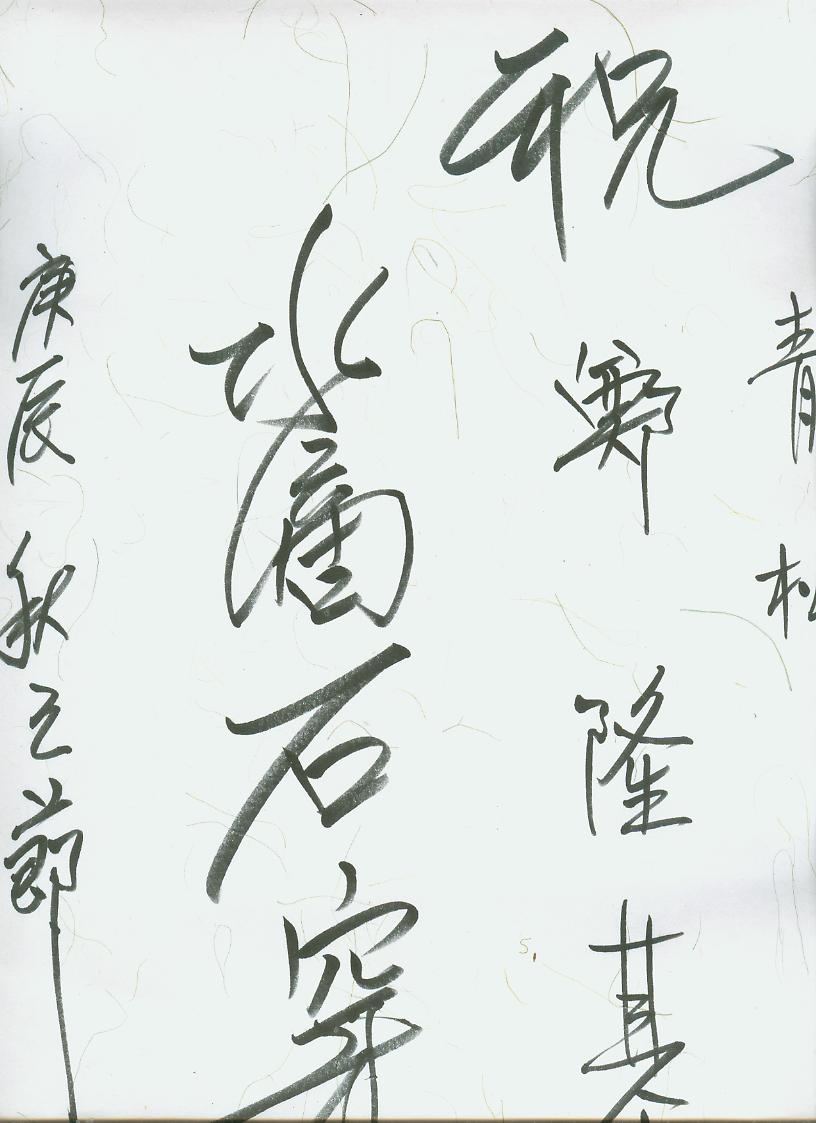 青松
祝
鄭隆基
水滴石穿
庚辰秋之節